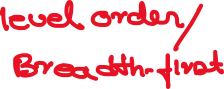 level order/
Breadth-first